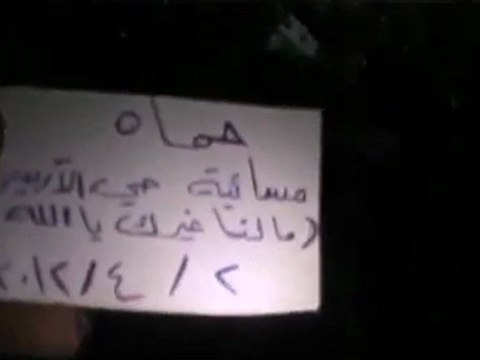 حماه
مسائية حي الأربعين
(مالنا غيرك يا الله
٢ / ٤ / ٢٠١٢